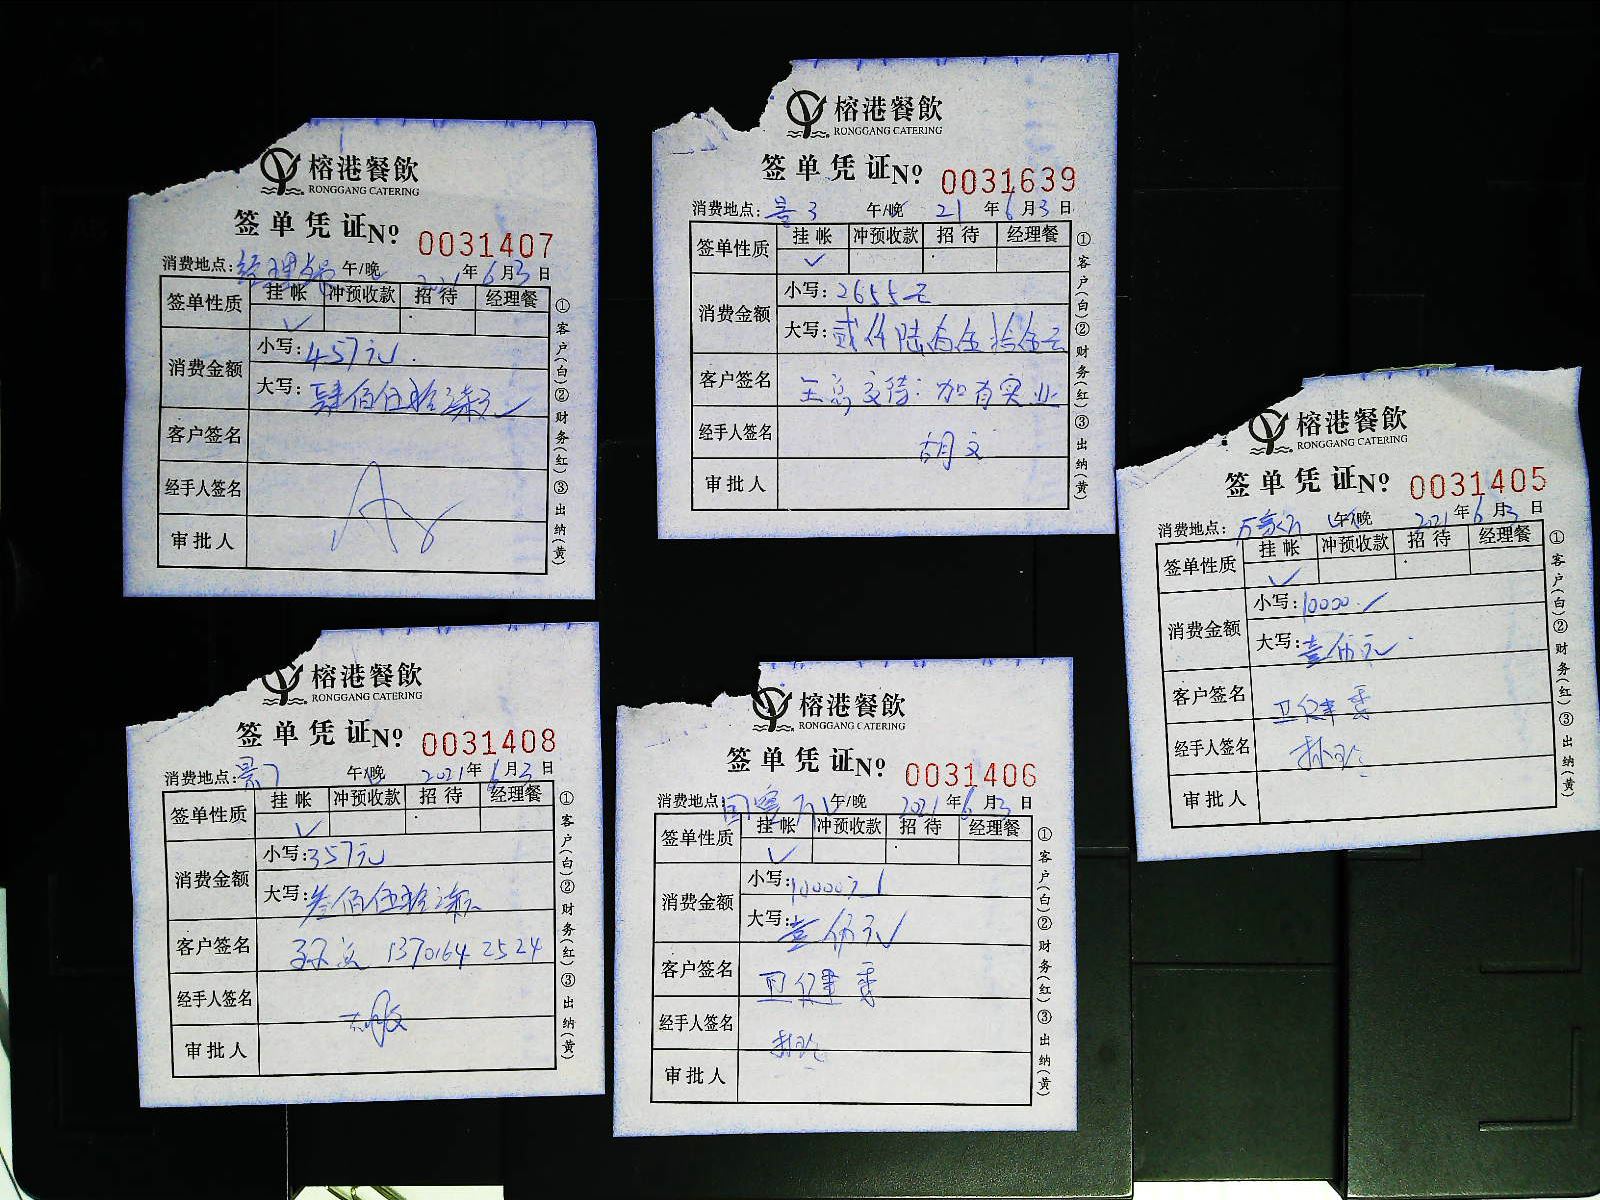 榕港餐飲
RONGGANG CATERING
签单凭证 Nº 0031407
消费地点: 午/晚 2021年6月3日
签单性质 挂帐 冲预收款 招待 经理餐
✓
消费金额 小写: 457元
大写: 肆佰伍拾柒元
客户签名
经手人签名
审批人
①客户(白)②财务(红)③出纳(黄)
榕港餐飲
RONGGANG CATERING
签单凭证 Nº 0031639
消费地点: 午/晚 21年6月3日
签单性质 挂帐 冲预收款 招待 经理餐
✓
消费金额 小写: 2655元
大写: 贰仟陆佰伍拾伍元
客户签名 王总交待: 加有实业
经手人签名 胡文
审批人
①客户(白)②财务(红)③出纳(黄)
榕港餐飲
RONGGANG CATERING
签单凭证 Nº 0031405
消费地点: 午/晚 2021年6月3日
签单性质 挂帐 冲预收款 招待 经理餐
✓
消费金额 小写: 10000
大写: 壹万元
客户签名 卫健委
经手人签名
审批人
①客户(白)②财务(红)③出纳(黄)
榕港餐飲
RONGGANG CATERING
签单凭证 Nº 0031408
消费地点: 午/晚 2021年6月3日
签单性质 挂帐 冲预收款 招待 经理餐
✓
消费金额 小写: 357元
大写: 叁佰伍拾柒元
客户签名 1370164 2524
经手人签名
审批人
①客户(白)②财务(红)③出纳(黄)
榕港餐飲
RONGGANG CATERING
签单凭证 Nº 0031406
消费地点: 午/晚 2021年6月3日
签单性质 挂帐 冲预收款 招待 经理餐
✓
消费金额 小写: 10000元
大写: 壹万元
客户签名 卫健委
经手人签名
审批人
①客户(白)②财务(红)③出纳(黄)